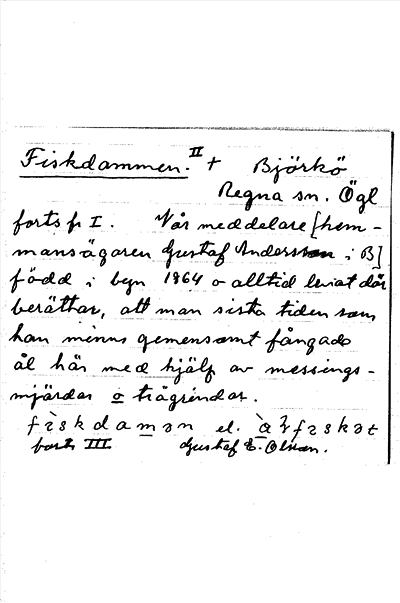 Fiskdammen. II + Björkö
Regna sn. Ögl
forts fr I. Vår meddelare [hem-
mansägaren Gustaf Andersson i B]
född i begn 1864 o alltid leviat där
berättar, att man sista tiden som
han minns gemensamt fångade
ål här med hjälp av messings-
mjärdar o trägrindar.
fìskdamən el. 
forts III Gustaf E. Olsson.